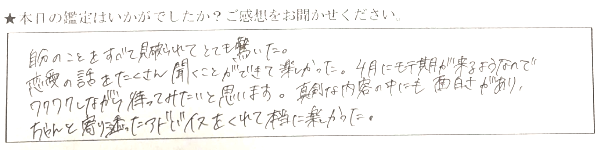 ★本日の鑑定はいかがでしたか？ご感想をお聞かせください。
自分のことをすべて見破られてとても驚いた。
恋愛の話をたくさん聞くことができて楽しかった。4月にモテ期が来るようなので
ワクワクしながら待ってみたいと思います。真剣な内容の中にも面白さがあり、
ちゃんと寄り添ったアドバイスをくれて本当に楽しかった。